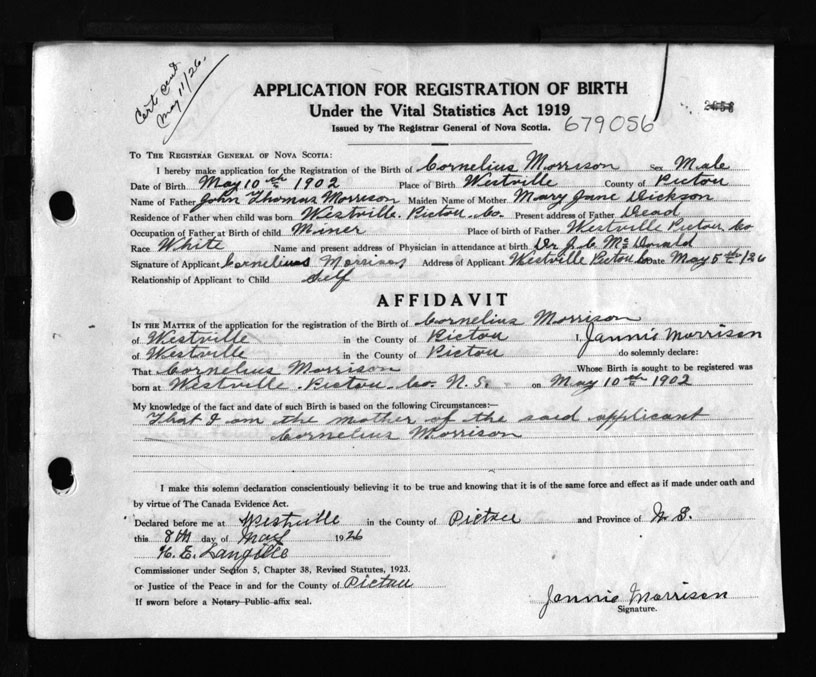 Cert cent
May 11/26.
APPLICATION FOR REGISTRATION OF BIRTH
Under the Vital Statistics Act 1919
Issued by The Registrar General of Nova Scotia.
679056
TO THE REGISTRAR GENERAL OF NOVA SCOTIA:
I hereby make application for the Registration of the Birth of Cornelius Morrison Sex Male
Date of Birth May 10th 1902 Place of Birth Westville County of Pictou
Name of Father John Thomas Morrison Maiden Name of Mother Mary Jane Dickson
Residence of Father when child was born Westville. Pictou. Co. Present address of Father Dead
Occupation of Father at Birth of child Miner Place of birth of Father Westville Pictou Co
Race White Name and present address of Physician in attendance at birth Dr J. C. McDonald
Signature of Applicant Cornelius Morrison Address of Applicant Westville Pictou Co Date May 5th/26
Relationship of Applicant to Child Self
AFFIDAVIT
IN THE MATTER of the application for the registration of the Birth of Cornelius Morrison
of Westville in the County of Pictou I, Jannie Morrison
of Westville in the County of Pictou do solemnly declare:
That Cornelius Morrison Whose Birth is sought to be registered was
born at Westville Pictou Co. N. S. on May 10th 1902
My knowledge of the fact and date of such Birth is based on the following Circumstances:—
That I am the mother of the said applicant
Cornelius Morrison
I make this solemn declaration conscientiously believing it to be true and knowing that it is of the same force and effect as if made under oath and
by virtue of The Canada Evidence Act.
Declared before me at Westville in the County of Pictou and Province of N. S.
this 8th day of May 1926
H. E. Langille
Commissioner under Section 5, Chapter 38, Revised Statutes, 1923.
or Justice of the Peace in and for the County of Pictou
If sworn before a Notary Public affix seal.
Jennie Morrison
Signature.